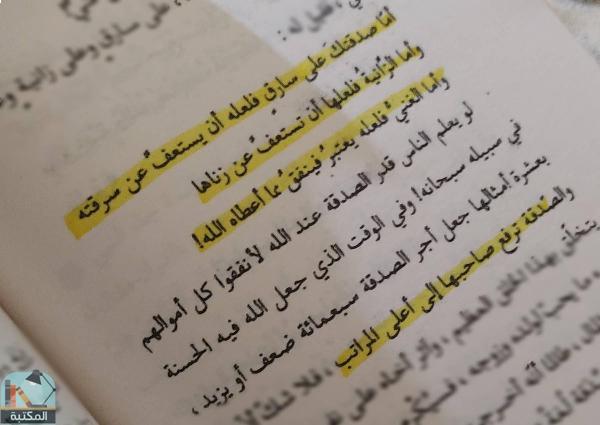 على سارق وعلى زانية
فقيل له:
أمّا صدقتك على سارق فلعله أن يستعفّ عن سرقته
وأما الزّانيةُ فلعلها أن تستعفّ عن زناها
وأما الغنيّ فلعله يعتبرُ فينفقُ ممّا أعطاه الله!
لو يعلم الناس قدر الصدقة عند الله لأنفقوا كل أموالهم
في سبيله سبحانه! وفي الوقت الذي جعل الله فيه الحسنة
بعشرة أمثالها جعل أجر الصدقة سبعمائة ضعف أو يزيد،
والصّدقة ترفع صاحبها إلى أعلى المراتب
يتخلّق بهذا الخلق العظيم،
ما يحبّ لولده وزوجه،
المكتبة